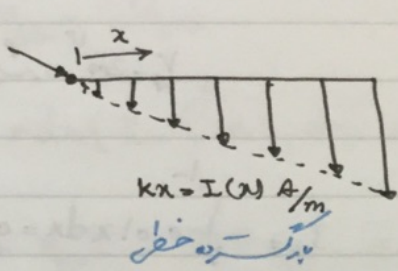 x
kx = I(x) A/m
بار گسترده خطی